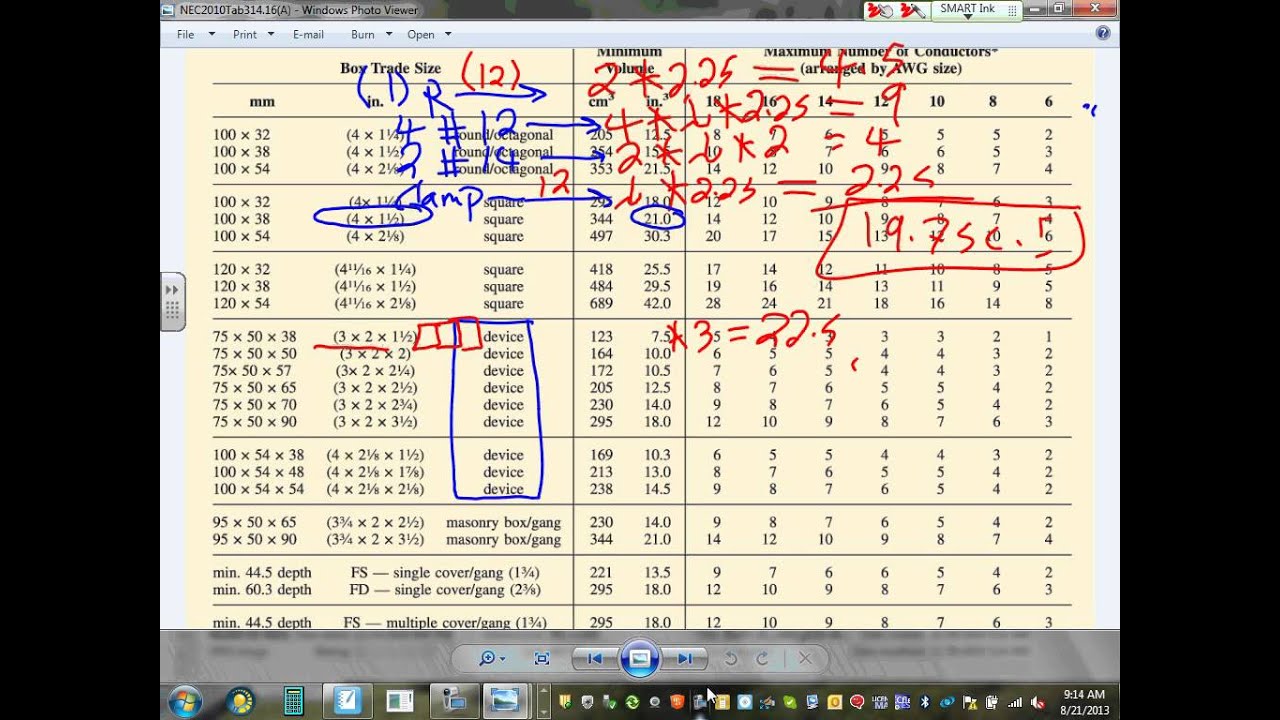 NEC2010Tab314.16(A) - Windows Photo Viewer
SMART Ink
File Print E-mail Burn Open
Minimum Maximum Number of Conductors*
Box Trade Size Volume (arranged by AWG size)
(1) R (12) 2 * 2.25 = 4.5
mm in. cm³ in.³ 18 16 14 12 10 8 6
4 # 12 4 * 1 * 2.25 = 9
100 × 32 (4 × 1¼) round/octagonal 205 12.5 8 7 6 5 5 5 2
2 # 14 2 * 1 * 2 = 4
100 × 38 (4 × 1½) round/octagonal 254 15.5 6 5 3
100 × 54 (4 × 2⅛) round/octagonal 353 21.5 14 12 10 9 8 7 4
clamp 12 1 * 2.25 = 2.25
100 × 32 (4× 1¼) square 295 18.0 12 10 9 8 7 6 3
100 × 38 (4 × 1½) square 344 21.0 14 12 10 9 8 7 4
19.75 c.
100 × 54 (4 × 2⅛) square 497 30.3 20 17 15 13 12 10 6
120 × 32 (4¹¹/₁₆ × 1¼) square 418 25.5 17 14 12 11 10 8 5
120 × 38 (4¹¹/₁₆ × 1½) square 484 29.5 19 16 14 13 11 9 5
120 × 54 (4¹¹/₁₆ × 2⅛) square 689 42.0 28 24 21 18 16 14 8
75 × 50 × 38 (3 × 2 × 1½) device 123 7.5 5 3 3 2 1
* 3 = 22.5
75 × 50 × 50 (3 × 2 × 2) device 164 10.0 6 5 5 4 4 3 2
75× 50 × 57 (3× 2 × 2¼) device 172 10.5 7 6 5 4 4 3 2
75 × 50 × 65 (3 × 2 × 2½) device 205 12.5 8 7 6 5 5 4 2
75 × 50 × 70 (3 × 2 × 2¾) device 230 14.0 9 8 7 6 5 4 2
75 × 50 × 90 (3 × 2 × 3½) device 295 18.0 12 10 9 8 7 6 3
100 × 54 × 38 (4 × 2⅛ × 1½) device 169 10.3 6 5 5 4 4 3 2
100 × 54 × 48 (4 × 2⅛ × 1⅞) device 213 13.0 8 7 6 5 5 4 2
100 × 54 × 54 (4 × 2⅛ × 2⅛) device 238 14.5 9 8 7 6 5 4 2
95 × 50 × 65 (3¾ × 2 × 2½) masonry box/gang 230 14.0 9 8 7 6 5 4 2
95 × 50 × 90 (3¾ × 2 × 3½) masonry box/gang 344 21.0 14 12 10 9 8 7 4
min. 44.5 depth FS — single cover/gang (1¾) 221 13.5 9 7 6 6 5 4 2
min. 60.3 depth FD — single cover/gang (2⅜) 295 18.0 12 10 9 8 7 6 3
min. 44.5 depth FS — multiple cover/gang (1¾) 295 18.0 12 10 9 8 7 6 3
9:14 AM
8/21/2013